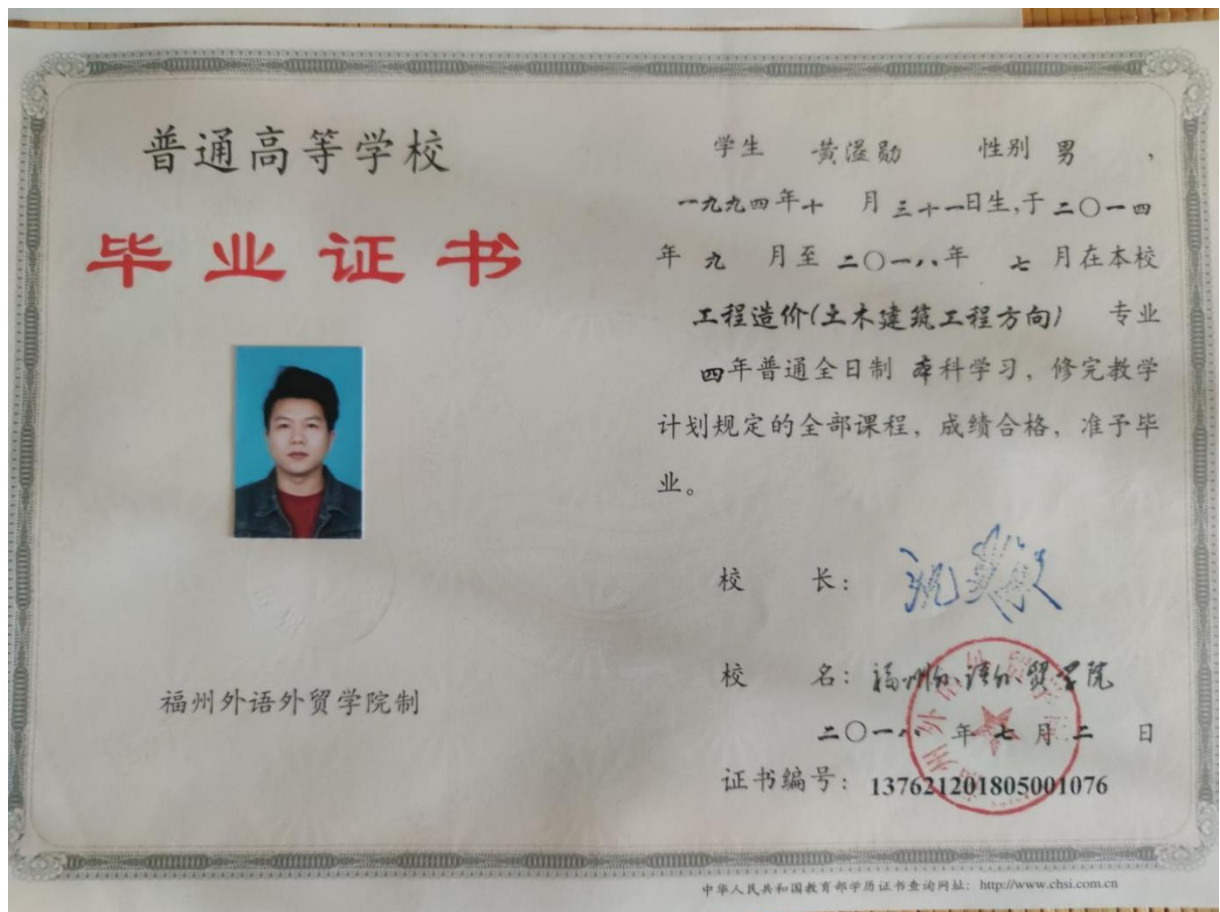 普通高等学校
毕业证书
福州外语外贸学院制
学生 黄溢勋 性别 男 ,
一九九四年十 月三十一日生,于二〇一四
年 九 月至二〇一八年 七 月在本校
工程造价(土木建筑工程方向) 专业
四年普通全日制 本科学习，修完教学
计划规定的全部课程，成绩合格，准予毕
业。
校 长：
校 名：福州外语外贸学院
二〇一八 年 七 月 二 日
证书编号：137621201805001076
中华人民共和国教育部学历证书查询网址：http://www.chsi.com.cn
福州外语外贸学院